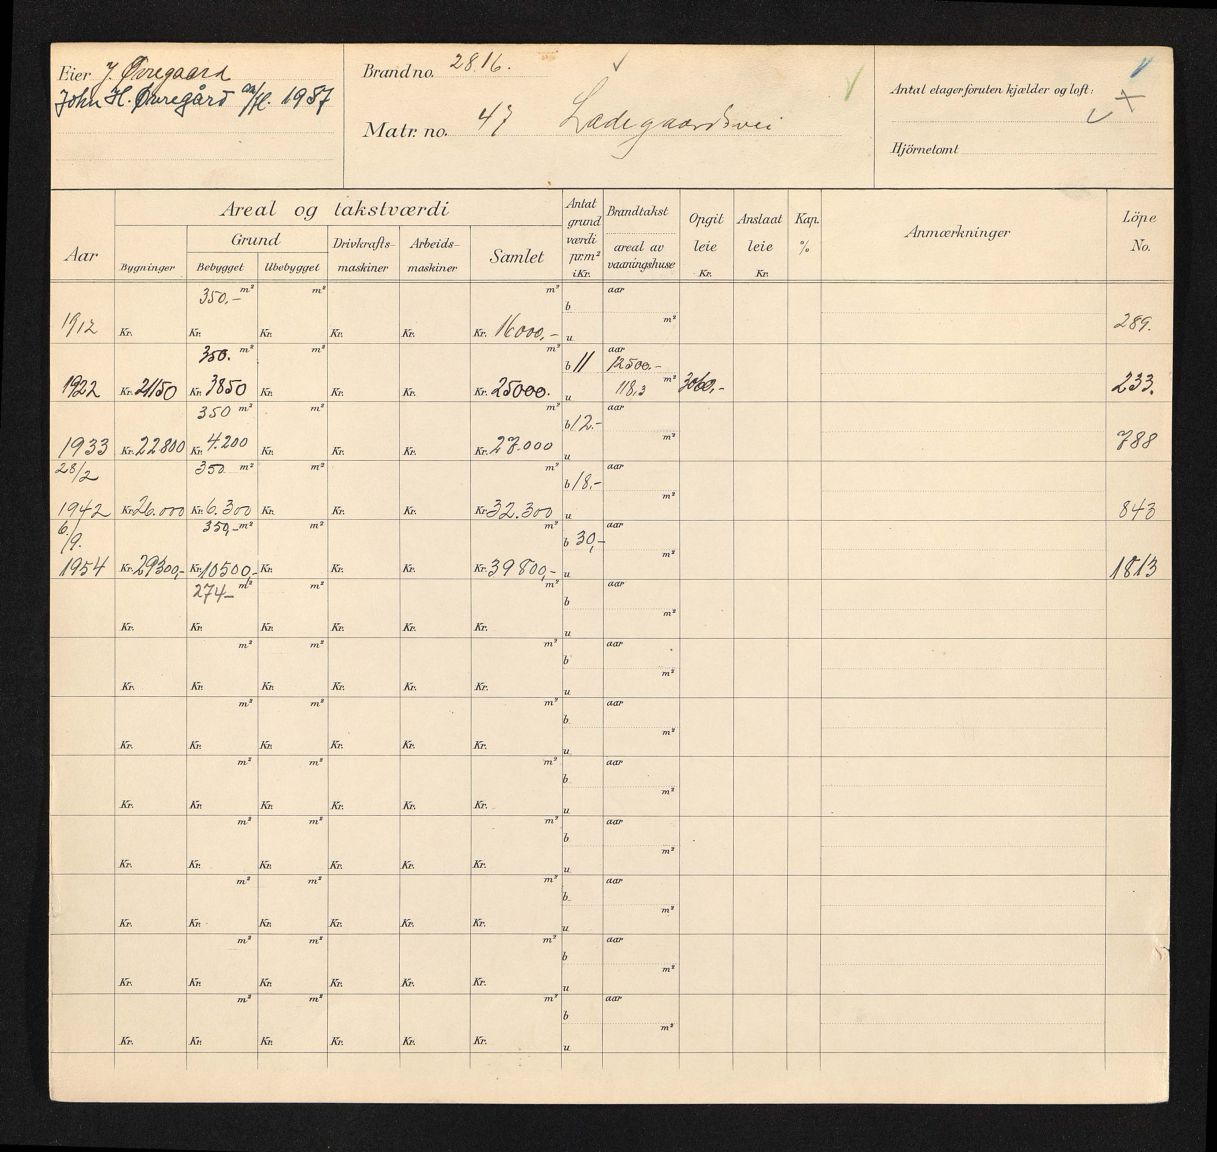 Eier J. Øvregaard
John H. Øvregård 1957
Brandno. 2816.
Matr. no. 47 Ladegaardsvei
Antal etager foruten kjælder og loft:
Hjörnetomt
Aar
Areal og takstværdi
Bygninger
Grund
Bebygget Ubebygget
Drivkrafts-
maskiner
Arbeids-
maskiner
Samlet
Antat
grund
værdi
pr. m²
i Kr.
Brandtakst
areal av
vaaningshuse
Opgit
leie
Kr.
Anslaat
leie
Kr.
Kap.
%
Anmærkninger
Löpe
No.
350.- m² m² m² b aar
1912 Kr. Kr. Kr. Kr. Kr. Kr. 16000,- u m² 289.
350. m² m² m² b 11 aar 12500.-
1922 Kr. 21150 Kr. 3850 Kr. Kr. Kr. Kr. 25000. u 118,3 m² 3060,- 233.
350 m² m² m² b 12.- aar
1933 Kr. 22800 Kr. 4.200 Kr. Kr. Kr. Kr. 27.000 u m² 788
28/2 350 m² m² m² b 18,- aar
1942 Kr. 26.000 Kr. 6.300 Kr. Kr. Kr. Kr. 32.300 u m² 843
6/9. 350,- m² m² m² b 30,- aar
1954 Kr. 29300,- Kr. 10500,- Kr. Kr. Kr. Kr. 39800,- u m² 1813
274- m² m² m² b aar
Kr. Kr. Kr. Kr. Kr. Kr. u m²
m² m² m² b aar
Kr. Kr. Kr. Kr. Kr. Kr. u m²
m² m² m² b aar
Kr. Kr. Kr. Kr. Kr. Kr. u m²
m² m² m² b aar
Kr. Kr. Kr. Kr. Kr. Kr. u m²
m² m² m² b aar
Kr. Kr. Kr. Kr. Kr. Kr. u m²
m² m² m² b aar
Kr. Kr. Kr. Kr. Kr. Kr. u m²
m² m² m² b aar
Kr. Kr. Kr. Kr. Kr. Kr. u m²
m² m² m² b aar
Kr. Kr. Kr. Kr. Kr. Kr. u m²